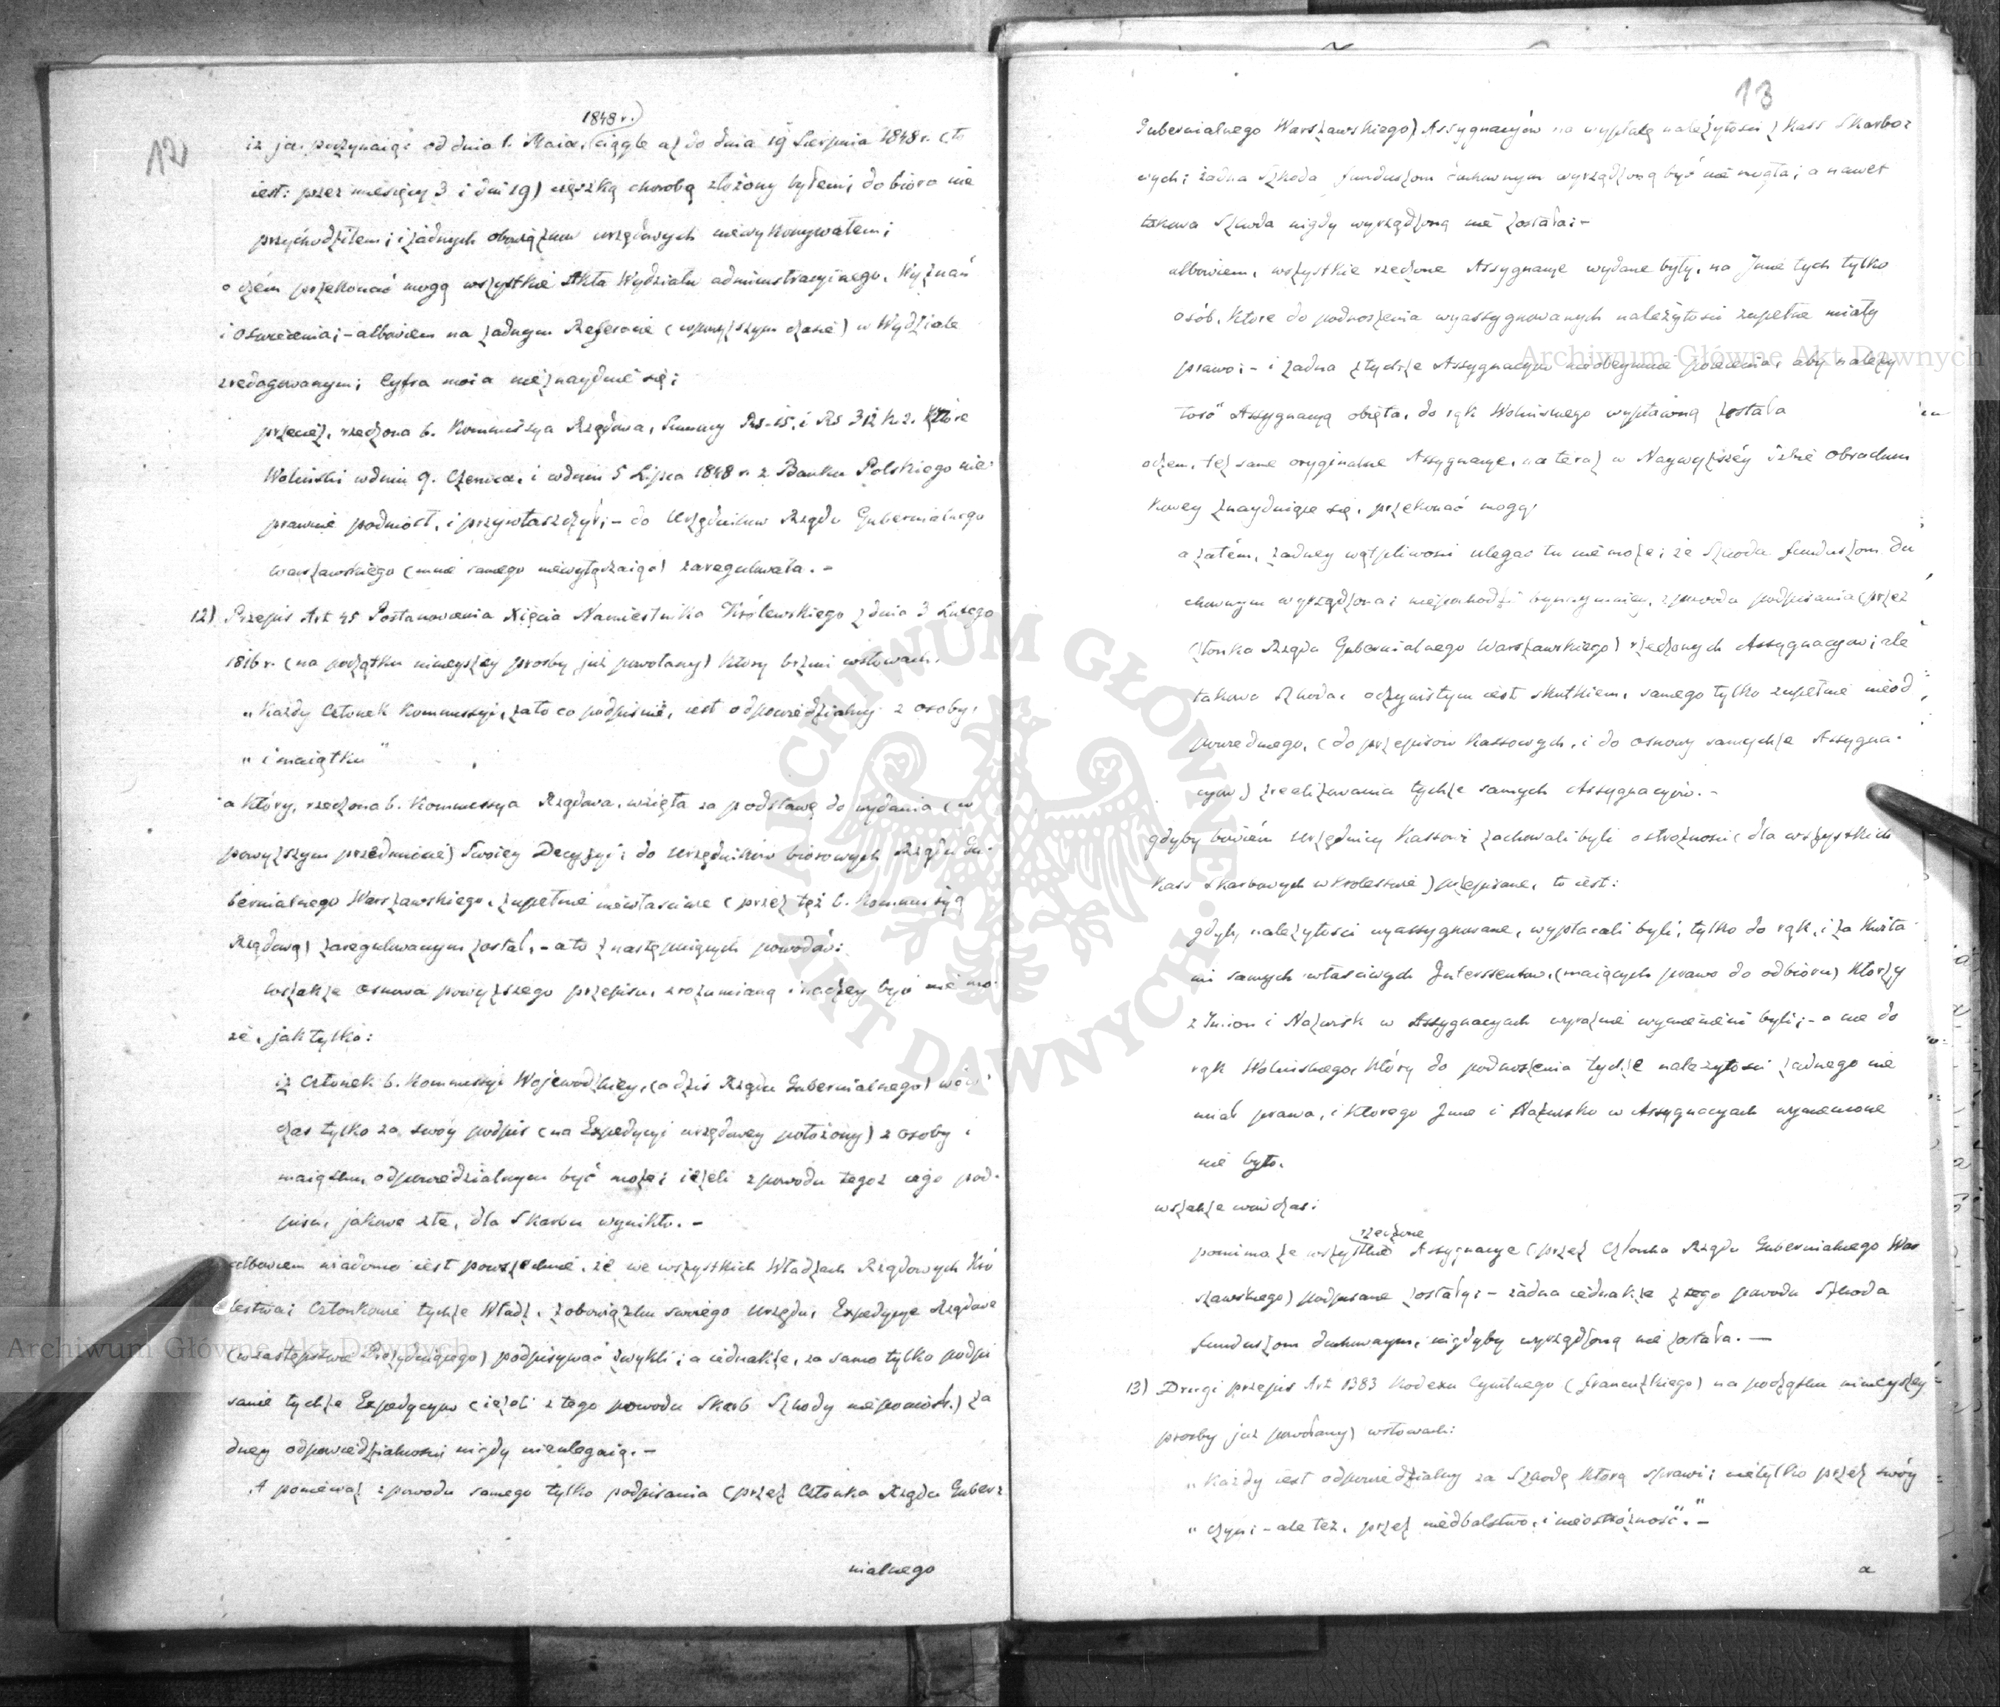 12
1848 r.
iż ja poczynaiąc od dnia 1. Maia ciągle aż do dnia 19 Sierpnia 1848 r. (to
iest: przez miesięcy 3 i dni 19) cięszką chorobą złożony byłem; do biora nie
przychodziłem; i żadnych obowiązków urzędowych niewykonywałem;
o czém przekonać mogą wszystkie Akta Wydziału administracyinego, Wyznań
i Oswiecenia; - albowiem na żadnym Referacie (w powyższym czasie) w Wydziale
zredagowanym; Cyfra moia nieznaydzie się;
przecież, rzeczona b. Kommissya Rządowa, Summy Rs. 15. i Rs 312 k. 2. które
Woliński w dniu 9. Czerwca, i w dniu 5 Lipca 1848 r. z Banku Polskiego nie-
prawnie podniósł, i przywłaszczył; - do Urzędników Rządu Gubernialnego
Warszawskiego (mnie samego niewyłączaiąc) zaregulowała. -
12) Przepis Art 45 Postanowienia Xięcia Namiestnika Królewskiego z dnia 3 Lutego
1816 r. (na początku ninieyszey prosby już powołany) który brzmi w słowach:
„Każdy Członek Kommissyi, za to co podpisze, iest odpowiedzialny z osoby,
„i maiątku"
a który, rzeczona b. Kommissya Rządowa, wzięła za podstawę do wydania (w
powyższym przedmiocie) Swoiey Decyzyi; do Urzędników biorowych Rządu Gu-
bernialnego Warszawskiego, zupełnie niewłaściwie (przez też b. Kommissyą
Rządową) zaregulowanym został, - a to z następuiących powodów:
wszakże osnowa powyższego przepisu, zrozumianą inaczey być nie mo-
że, jak tylko:
iż Członek b. Kommissyi Wojewódzkiey, (a dziś Rządu Gubernialnego) wów-
czas tylko za swóy podpis (na Expedycyi urzędowey położony) z osoby i
maiątku odpowiedzialnym być może; ieżeli z powodu tegoż iego pod-
pisu, jakowe złe, dla Skarbu wynikło. -
albowiem wiadomo iest powszechnie, że we wszystkich Władzach Rządowych Kró
lestwa; Członkowie tychże Władz, z obowiązku swoiego Urzędu, Expedycye Rządowe
(w zastępstwie Prezyduiącego) podpisywać zwykli; a iednakże, za samo tylko podpi
sanie tychże Expedycyów (ieżeli z tego powodu Skarb Szkody nieponiósł) ża
dney odpowiedzialności nigdy nieulegaią. -
A ponieważ z powodu samego tylko podpisania (przez Członka Rządu Guber=
nialnego
13
Gubernialnego Warszawskiego) Assygnacyów na wypłatę należytości z Kass Skarbo=
wych; żadna szkoda funduszom duchownym wyrządzoną być nie mogła; a nawet
takowa Szkoda nigdy wyrządzoną nie została; -
albowiem, wszystkie rzeczone Assygnacye wydane były, na Jmie tych tylko
osób, które do podnoszenia wyassygnowanych należytości zupełne miały
prawo; - i żadna z tychże Assygnacyów nieobeymuie polecenia, aby należy
tość Assygnacyą obięta, do rąk Wolińskiego wypłaconą została
o czem, też same oryginalne Assygnacye, na teraz w Naywyższéy Izbie Obrachun
kowey znayduiące się, przekonać mogą;
a zatém, żadney wątpliwości ulegać tu nie może; że Szkoda funduszom du
chownym wyrządzona; niepochodzi bynaymniey, z powodu podpisania (przez
Członka Rządu Gubernialnego Warszawskiego) rzeczonych Assygnacyów; ale
takowa Szkoda; oczywistym iest skutkiem, samego tylko zupełnie nieod
powiednego, (do przepisów Kassowych, i do osnowy samychże Assygna-
cyów) zrealizowania tychże samych Assygnacyów. -
gdyby bowiém Urzędnicy Kassowi zachowali byli ostrożność (dla wszystkich
Kass Skarbowych w Królestwie) przepisane, to iest:
gdyby należytości wyassygnowane, wypłacali byli, tylko do rąk, i za kwita-
mi samych właściwych Interssentów, (maiących prawo do odbioru) którzy
z Imion i Nazwisk w Assygnacyach wyraźnie wymienieni byli; - a nie do
rąk Wolińskiego, który do podnoszenia tychże należytości żadnego nie
miał prawa, i którego Jmie i Nazwisko w Assygnacyach wymienione
nie było.
wszakże wówczas:
rzeczone
pomimo że wszystkie Assygnacye (przez Członka Rządu Gubernialnego War
szawskiego) podpisane zostały; - żadna iednakże z tego powodu Szkoda
funduszom duchownym, nigdyby wyrządzoną nie została. -
13) Drugi przepis Art 1383 Kodexu Cywilnego (francuzkiego) na początku ninieyszéy
prosby już powołany) w słowach:
„Każdy iest odpowiedzialny za Szkodę którą sprawi; nietylko przez swóy
„czyn; - ale też, przez niedbalstwo, i nieostrożność". -
a
ARCHIWUM GŁÓWNE AKT DAWNYCH
Archiwum Główne Akt Dawnych
Archiwum Główne Akt Dawnych